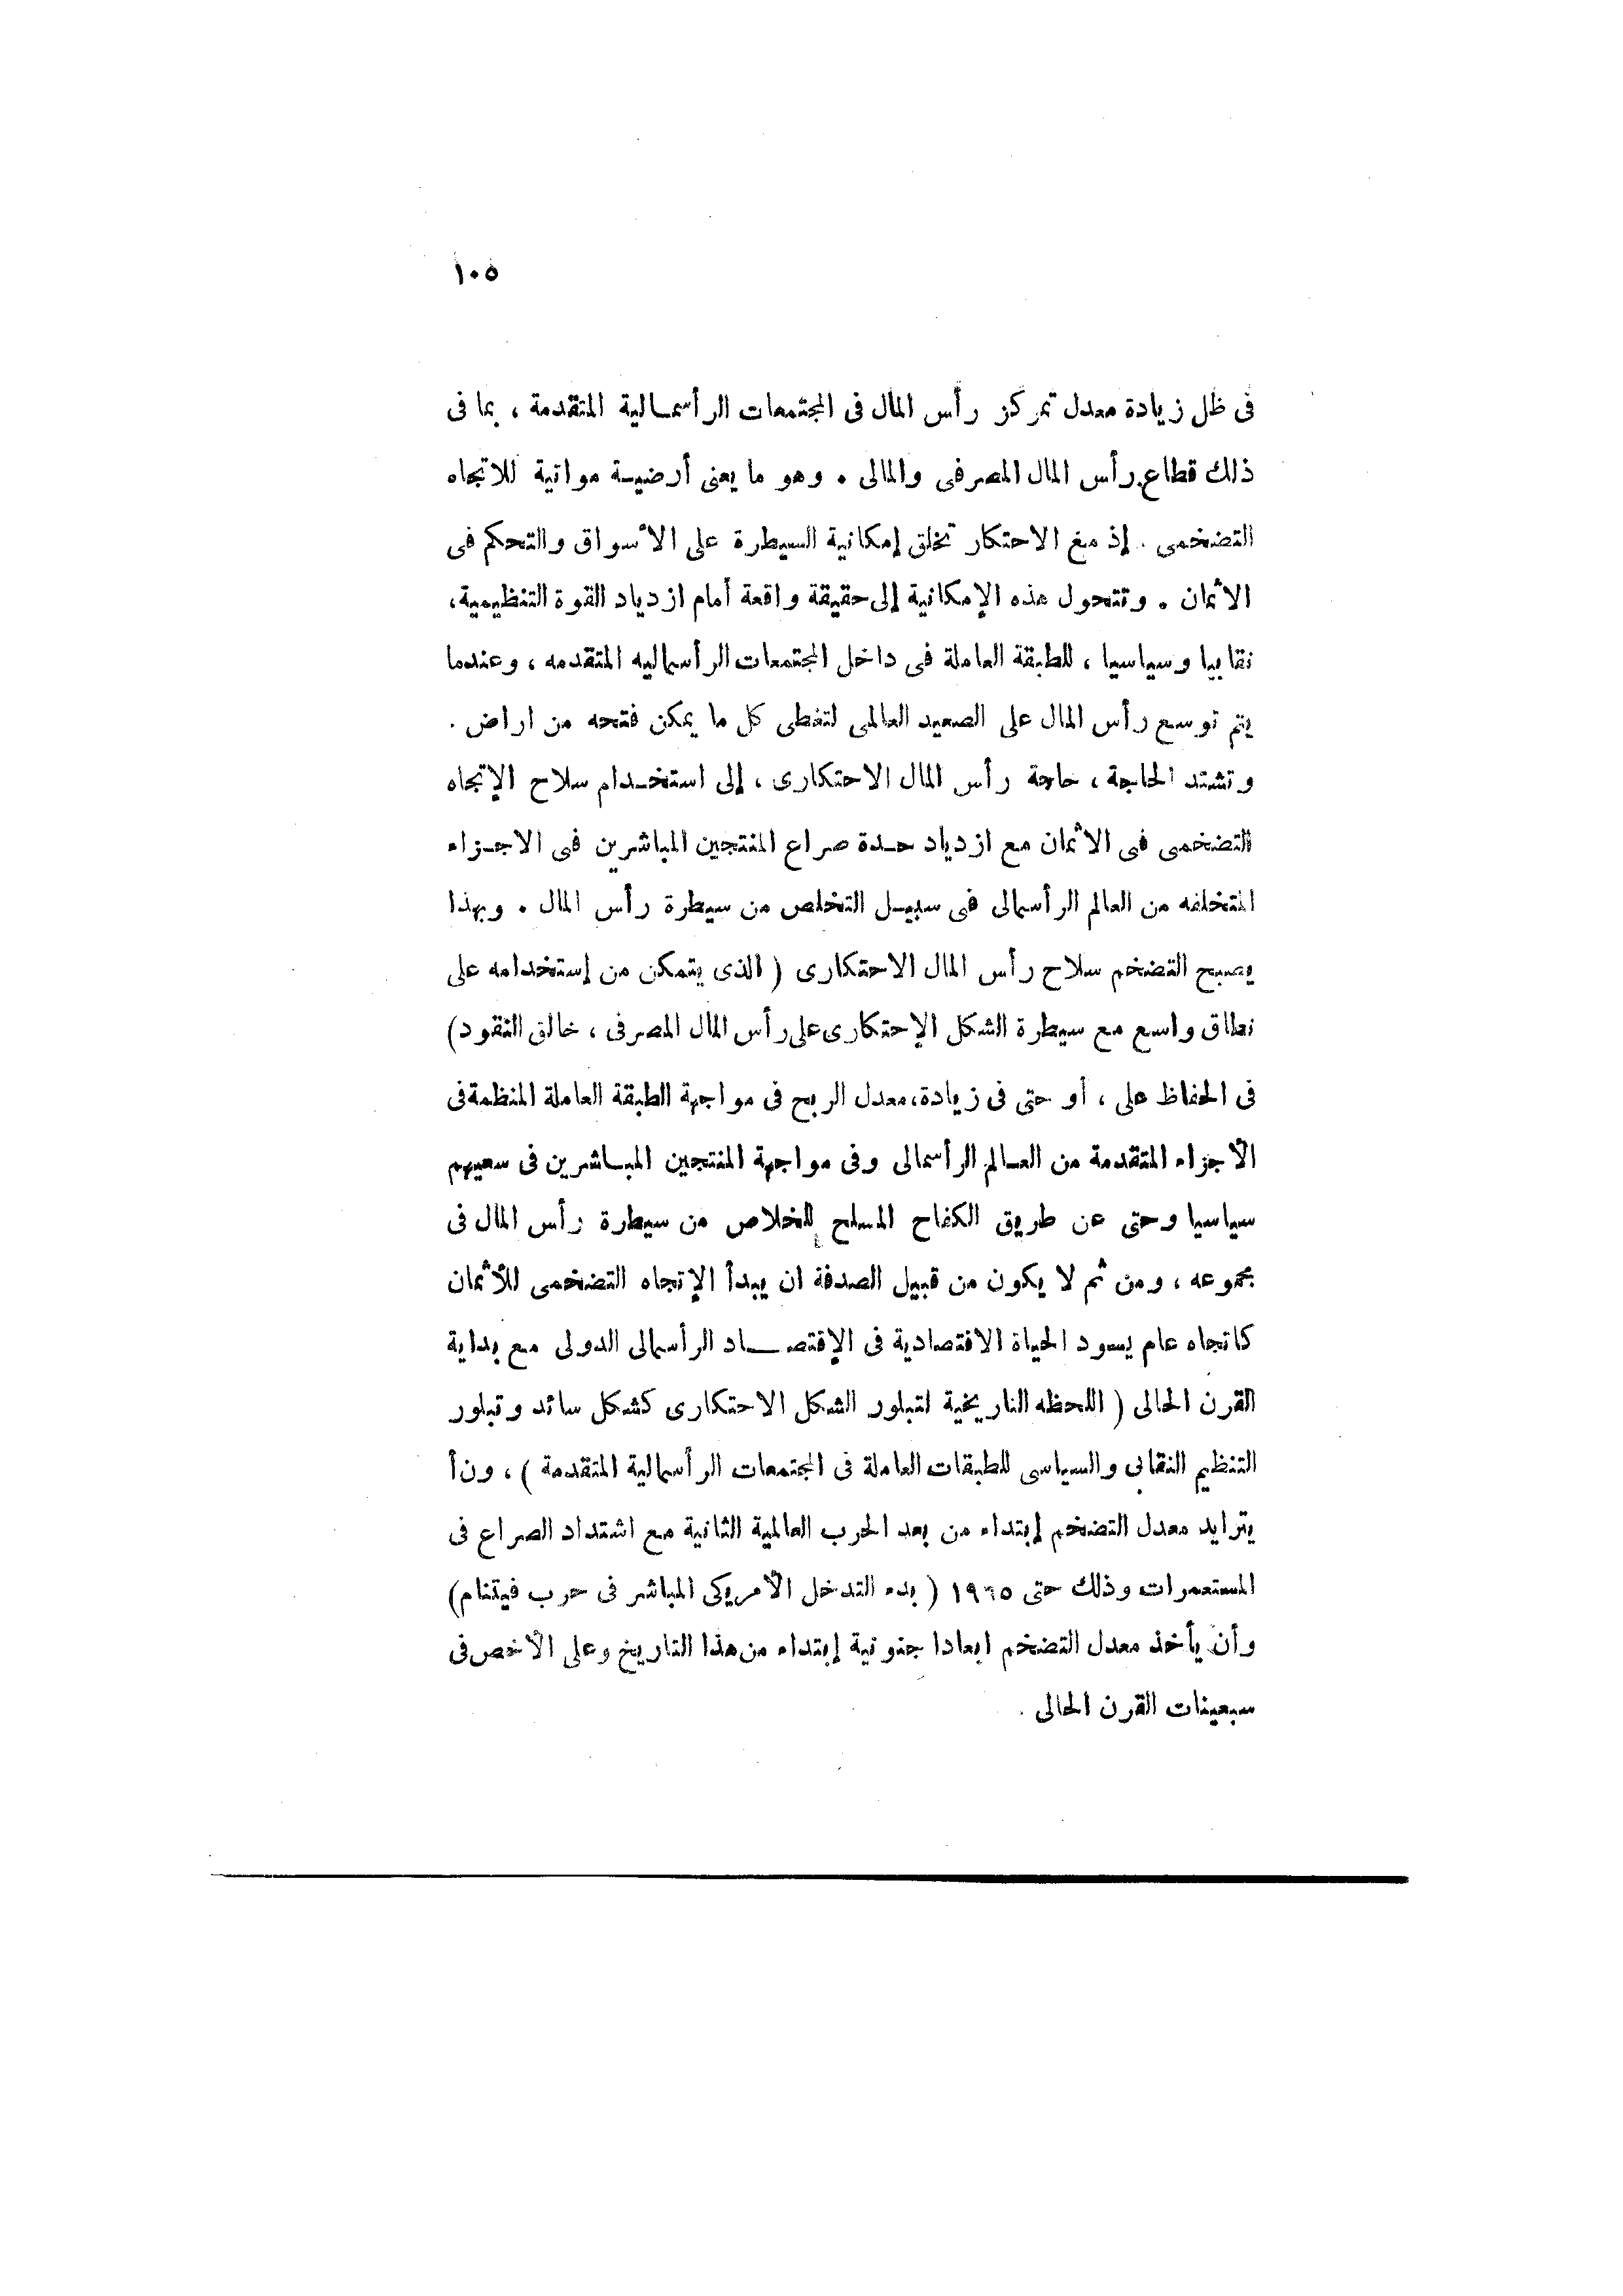 ١٠٥
فى ظل زيادة معدل تمركز رأس المال فى المجتمعات الرأسمالية المتقدمة ، بما فى
ذلك قطاع رأس المال المصرفى والمالى . وهو ما يعنى أرضية مواتية للاتجاه
التضخمى . إذ مغ الاحتكار تخلق إمكانية السيطرة على الأسواق والتحكم فى
الأثمان . وتتحول هذه الإمكانية إلى حقيقة واقعة أمام ازدياد القوة التنظيمية،
نقابيا وسياسيا ، للطبقة العاملة فى داخل المجتمعات الرأسماليه المتقدمه ، وعندما
يتم توسع رأس المال على الصعيد العالمى لتغطى كل ما يمكن فتحه من اراض .
وتشتد الحاجة ، حاجة رأس المال الاحتكارى ، إلى استخدام سلاح الإتجاه
التضخمى فى الأثمان مع ازدياد حدة صراع المنتجين المباشرين فى الاجزاء
المتخلفه من العالم الرأسمالى فى سبيل التخلص من سيطرة رأس المال . وبهذا
يصبح التضخم سلاح رأس المال الاحتكارى ( الذى يتمكن من إستخدامه على
نطاق واسع مع سيطرة الشكل الإحتكارى على رأس المال المصرفى ، خالق النقود)
فى الحفاظ على ، أو حتى فى زيادة، معدل الربح فى مواجهة الطبقة العاملة المنظمة فى
الأجزاء المتقدمة من العالم الرأسمالى وفى مواجهة المنتجين المباشرين فى سعيهم
سياسيا وحتى عن طريق الكفاح المسلح للخلاص من سيطرة رأس المال فى
مجموعه ، ومن ثم لا يكون من قبيل الصدفة ان يبدأ الإتجاه التضخمى للأثمان
كاتجاه عام يسود الحياة الاقتصادية فى الإقتصاد الرأسمالى الدولى مع بداية
القرن الحالى ( اللحظه التاريخية لتبلور الشكل الاحتكارى كشكل سائد وتبلور
التنظيم النقابى والسياسى للطبقات العاملة فى المجتمعات الرأسمالية المتقدمة ) ، ونأ
يتزايد معدل التضخم إبتداء من بعد الحرب العالمية الثانية مع اشتداد الصراع فى
المستعمرات وذلك حتى ١٩٦٥ ( بدء التدخل الأمريكى المباشر فى حرب فيتنام)
وأن يأخذ معدل التضخم ابعادا جنونية إبتداء من هذا التاريخ وعلى الأخص فى
سبعينات القرن الحالى .